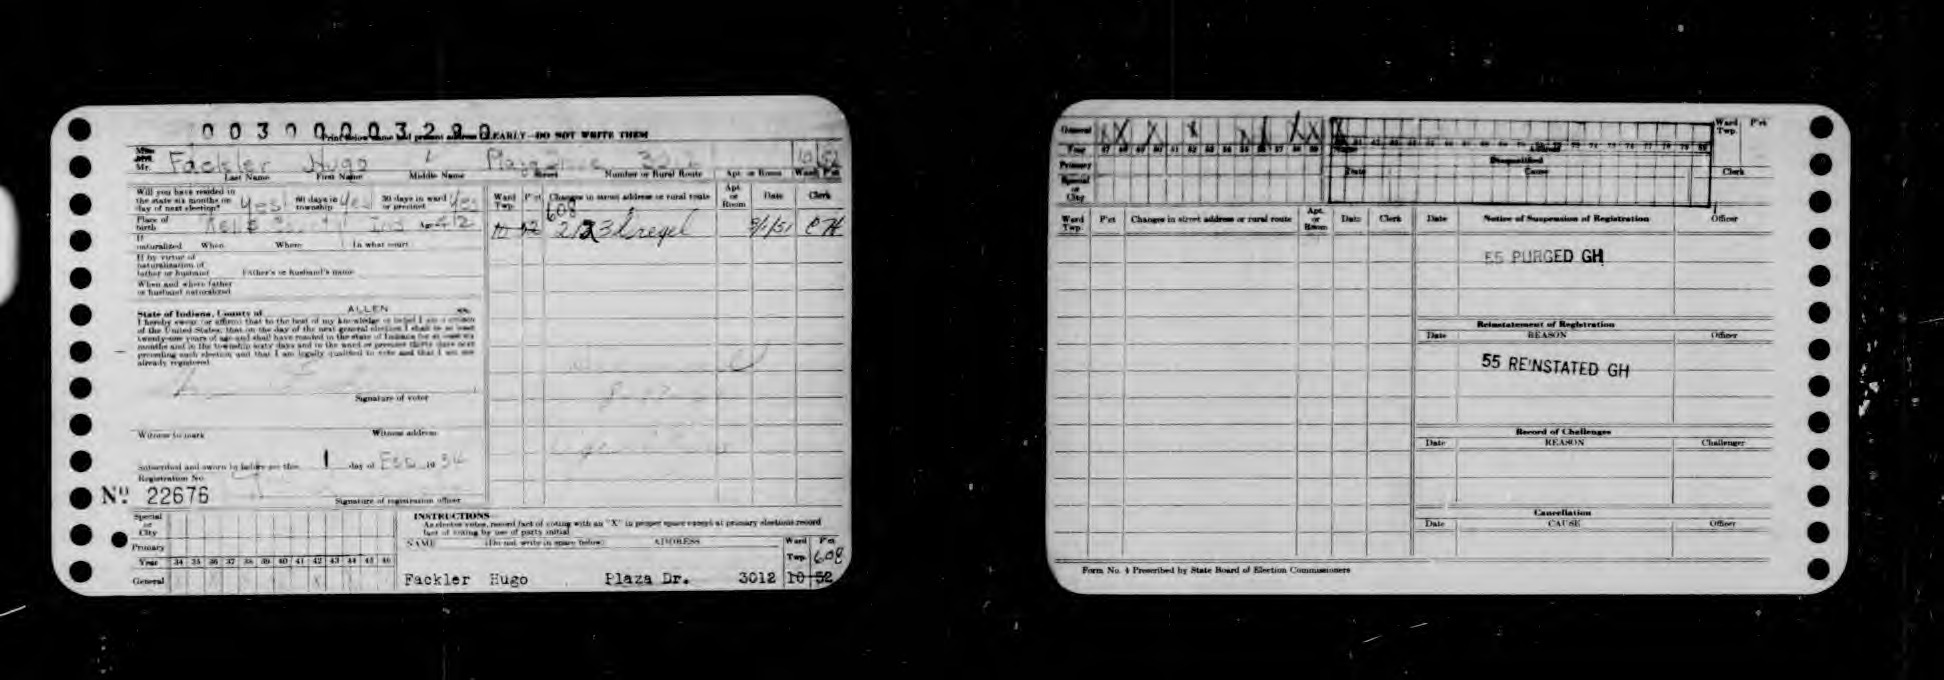 0 0 3 0 0 0 0 3 2 9 0
Print below name and present address CLEARLY—DO NOT WRITE THEM
Mr. Fackler Hugo 10 52
Last Name First Name Middle Name Street Number or Rural Route Apt. or Room Ward P'ct
Will you have resided in
the state six months on
day of next election? Yes 60 days in township Yes 30 days in ward or precinct Yes
Ward Twp. P'ct Changes in street address or rural route Apt. or Room Date Clerk
608
10 52 2123 Kregel
Place of birth Age 42
If naturalized When Where In what court
If by virtue of
naturalization of
father or husband Father's or husband's name
When and where father
or husband naturalized
State of Indiana, County of ALLEN ss.
I hereby swear (or affirm) that to the best of my knowledge or belief I am a citizen
of the United States; that on the day of the next general election I shall be at least
twenty-one years of age and shall have resided in the state of Indiana for at least six
months and in the township sixty days and in the ward or precinct thirty days next
preceding such election and that I am legally qualified to vote and that I am not
already registered.
Signature of voter
Witness to mark Witness address
Subscribed and sworn to before me this 1 day of Feb 19 34
Registration No.
Nº 22676 Signature of registration officer
Special or City
Primary
Year 34 35 36 37 38 39 40 41 42 43 44 45 46
General
INSTRUCTIONS
As elector votes, record fact of voting with an "X" in proper space except at primary elections record
fact of voting by use of party initial
NAME (Do not write in space below) ADDRESS Ward Twp. P'ct 608
Fackler Hugo Plaza Dr. 3012 10 52
General X X X X X X X
Year 47 48 49 50 51 52 53 54 55 56 57 58 59
Primary
Special or City
Disqualified
Date Cause
Ward Twp. P'ct
Clerk
Ward Twp. P'ct Changes in street address or rural route Apt. or Room Date Clerk Date Notice of Suspension of Registration Officer
55 PURGED GH
Reinstatement of Registration
Date REASON Officer
55 REINSTATED GH
Record of Challenges
Date REASON Challenger
Cancellation
Date CAUSE Officer
Form No. 4 Prescribed by State Board of Election Commissioners